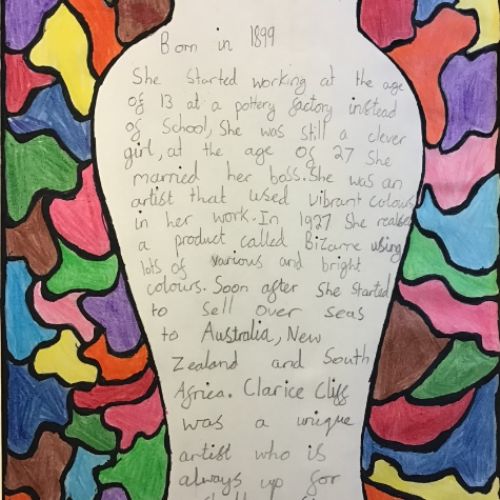 Born in 1899
She started working at the age
of 13 at a pottery factory instead
of School, She was still a clever
girl, at the age of 27 She
married her boss. She was an
artist that used vibrant colours
in her work. In 1927 She realses
a product called Bizarre using
lots of various and bright
colours. Soon after She Started
to sell over seas
to Australia, New
Zealand and South
Africa. Clarice Cliff
was a unique
artist who is
always up for